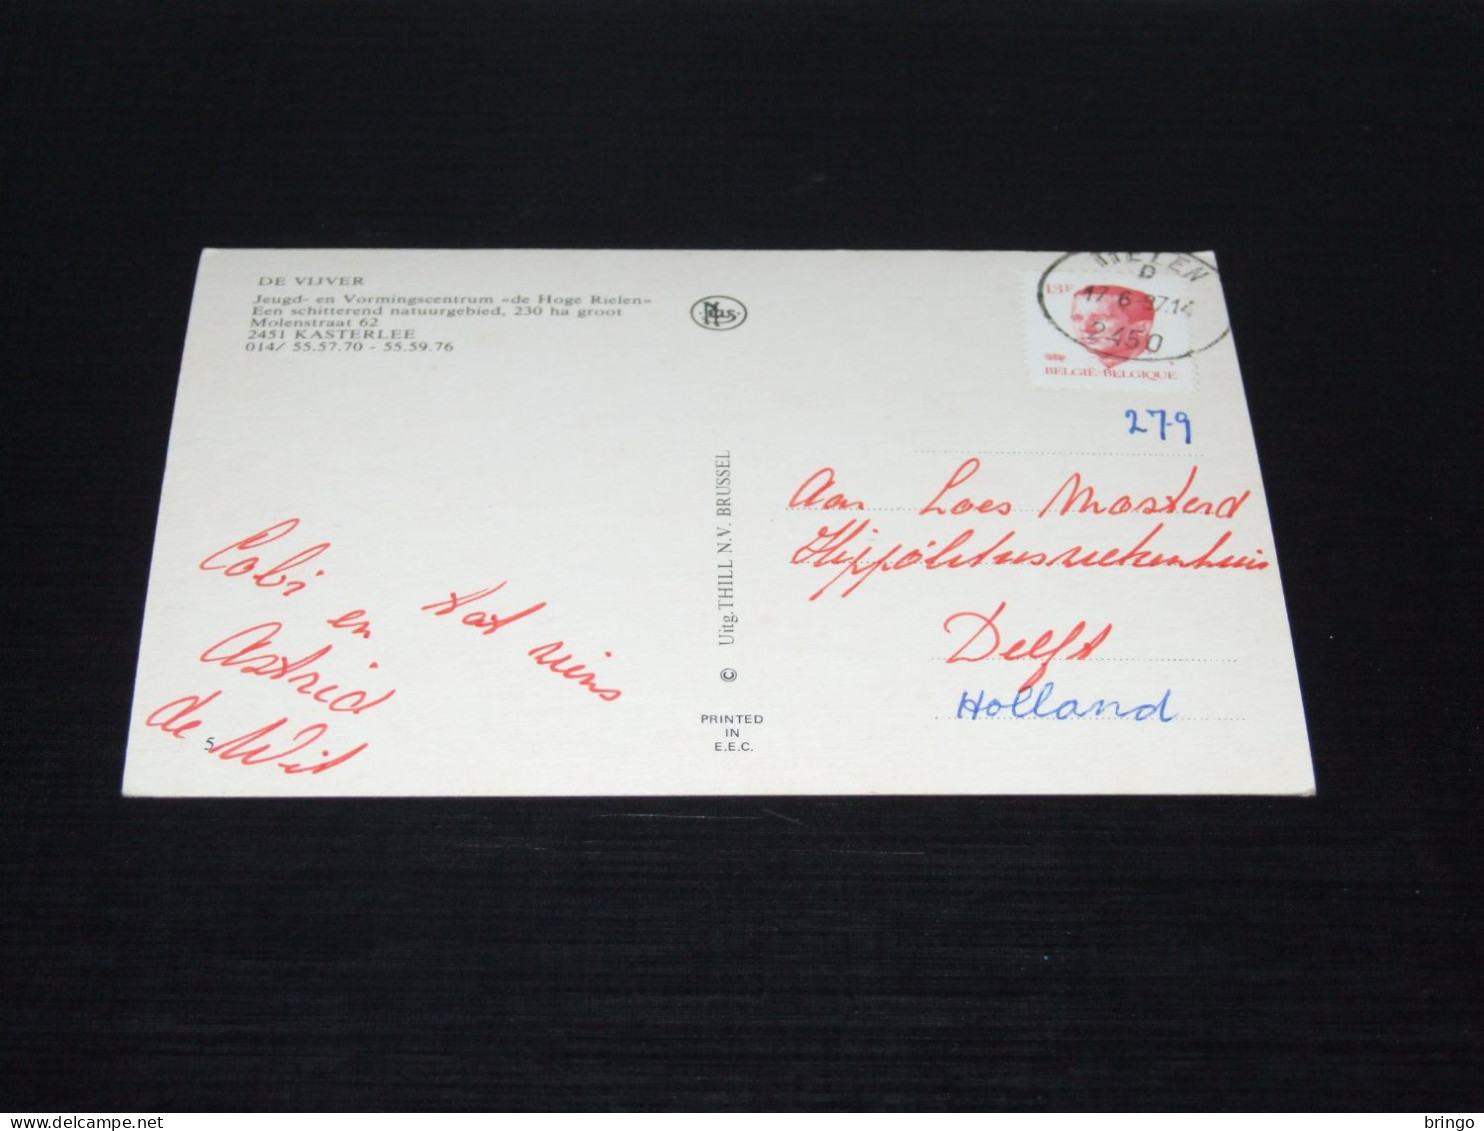 DE VIJVER
Jeugd- en Vormingscentrum «de Hoge Rielen»
Een schitterend natuurgebied, 230 ha groot
Molenstraat 62
2451 KASTERLEE
014/ 55.57.70 - 55.59.76
Cobi
en
Astrid
de Wit
tot ziens
5
© Uitg. THILL N.V. BRUSSEL
PRINTED
IN
E.E.C.
D
17-6-87.14
2450
13F
BELGIË-BELGIQUE
279
Aan Loes Mosterd
Hippolytusziekenhuis
Delft
Holland
© delcampe.net
bringo